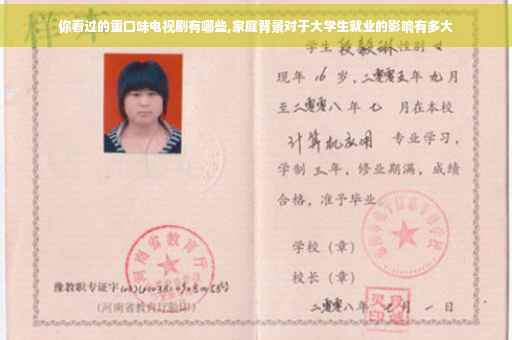 你看过的重口味电视剧有哪些,家庭背景对于大学生就业的影响有多大
样本
学生 段毅琳 性别 女
现年 16 岁,二零零五年 九月
至二零零八年 七 月在本校
计算机应用 专业学习,
学制 三 年,修业期满,成绩
合格,准予毕业
学校(章)
校长(章)
豫教职专证字
(河南省教育厅验印)
二零零八年 七 月 一 日
河南省教育厅